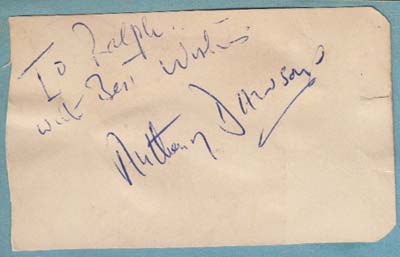 To Ralph..
with Best Wishes
Anthony Dawson